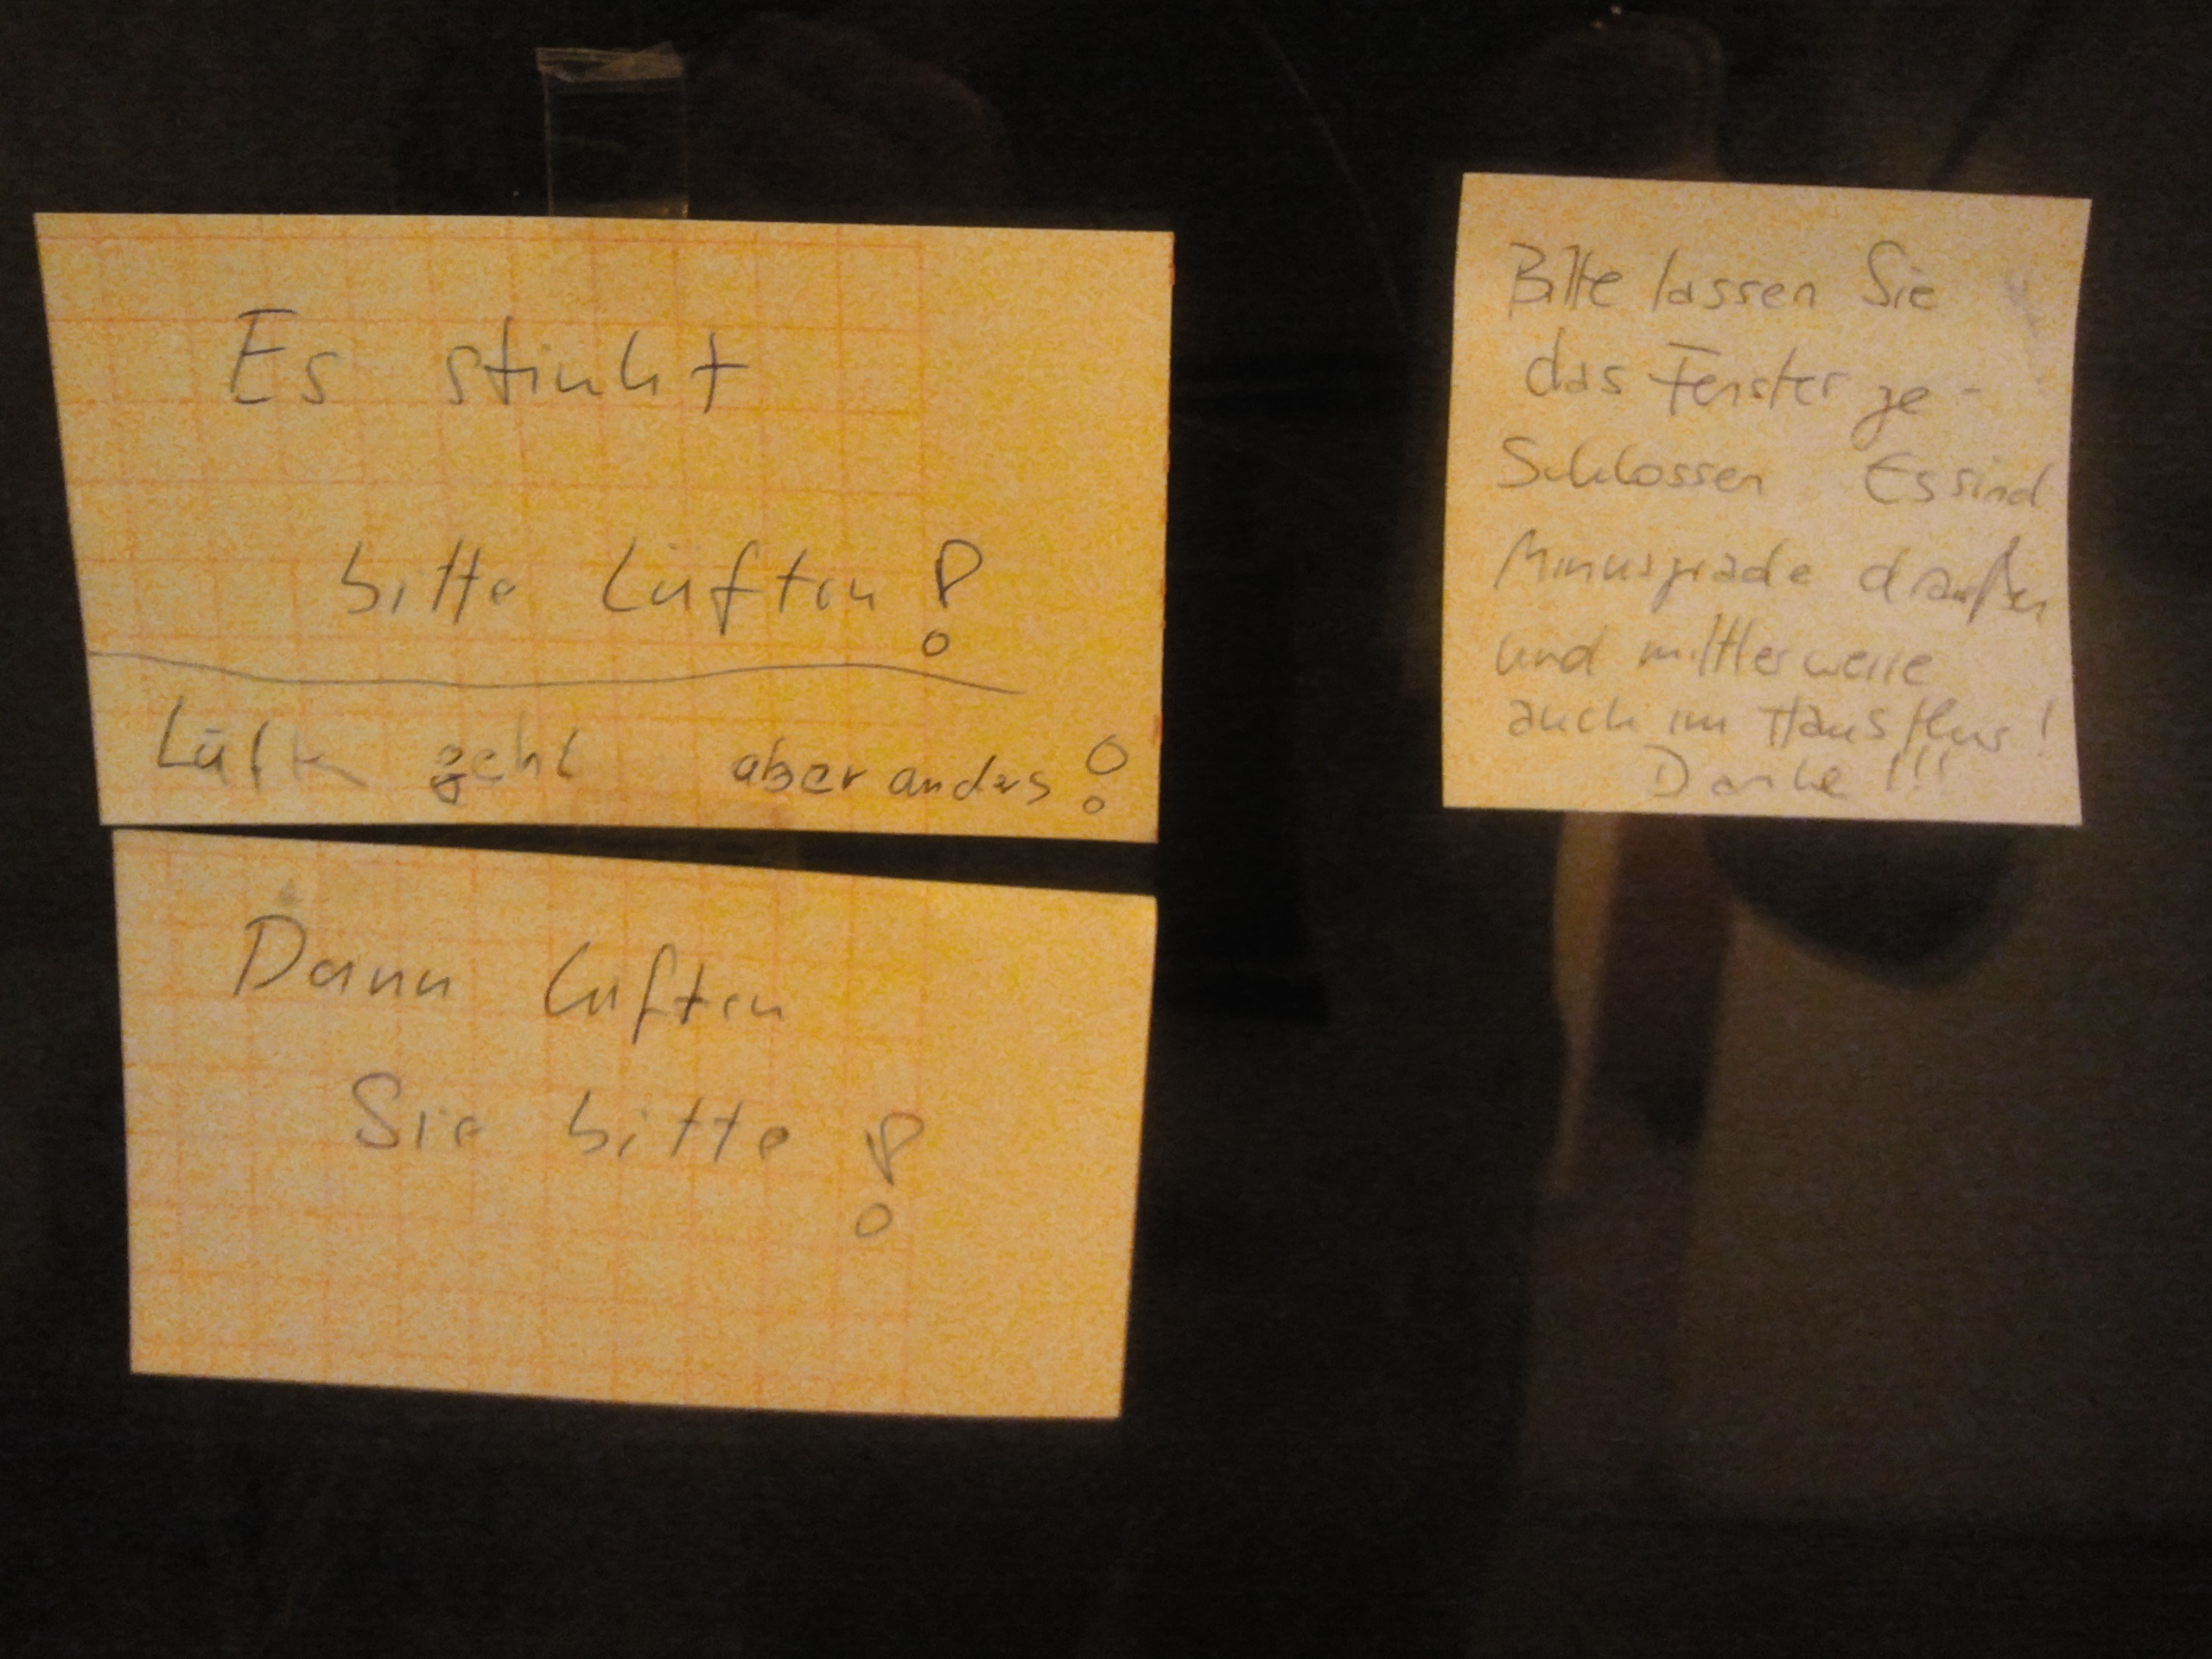 Es stinkt
bitte lüften!
Lüften geht aber anders!
Dann lüften
Sie bitte!
Bitte lassen Sie
das Fenster ge-
schlossen Es sind
Minusgrade draußen
und mittlerweile
auch im Hausflur!
Danke!!!